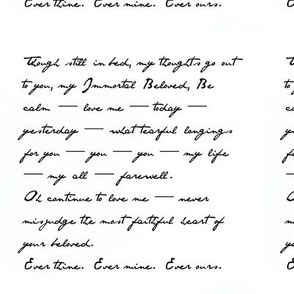 Ever thine. Ever mine. Ever ours.
Though still in bed, my thoughts go out
to you, my Immortal Beloved, Be
calm — love me — today —
yesterday — what tearful longings
for you — you — you — my life
— my all — farewell.
Oh continue to love me — never
misjudge the most faithful heart of
your beloved.
Ever thine. Ever mine. Ever ours.